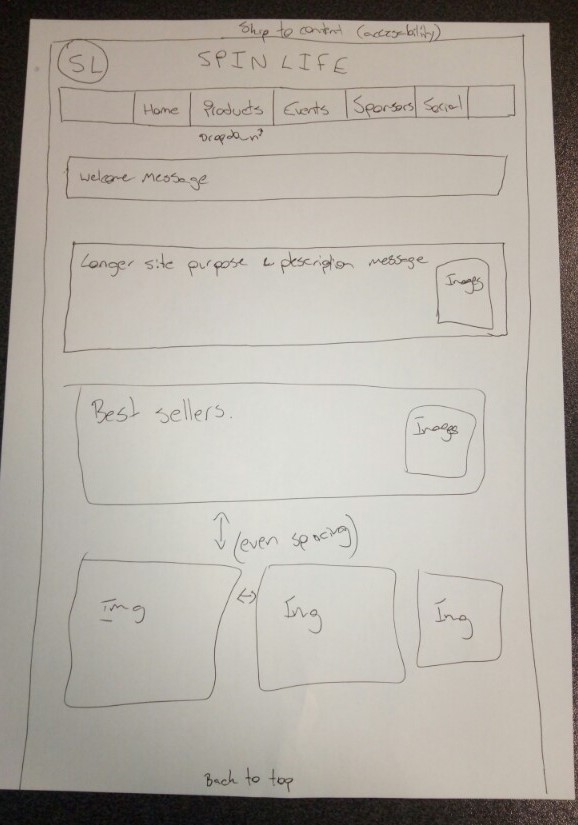 Skip to content (accesability)
SL
SPIN LIFE
Home Products Events Sponsors Social
Dropdown?
Welcome Message
Longer site purpose & description message
Images
Best sellers.
Images
(even spacing)
Img Img Img
Back to top